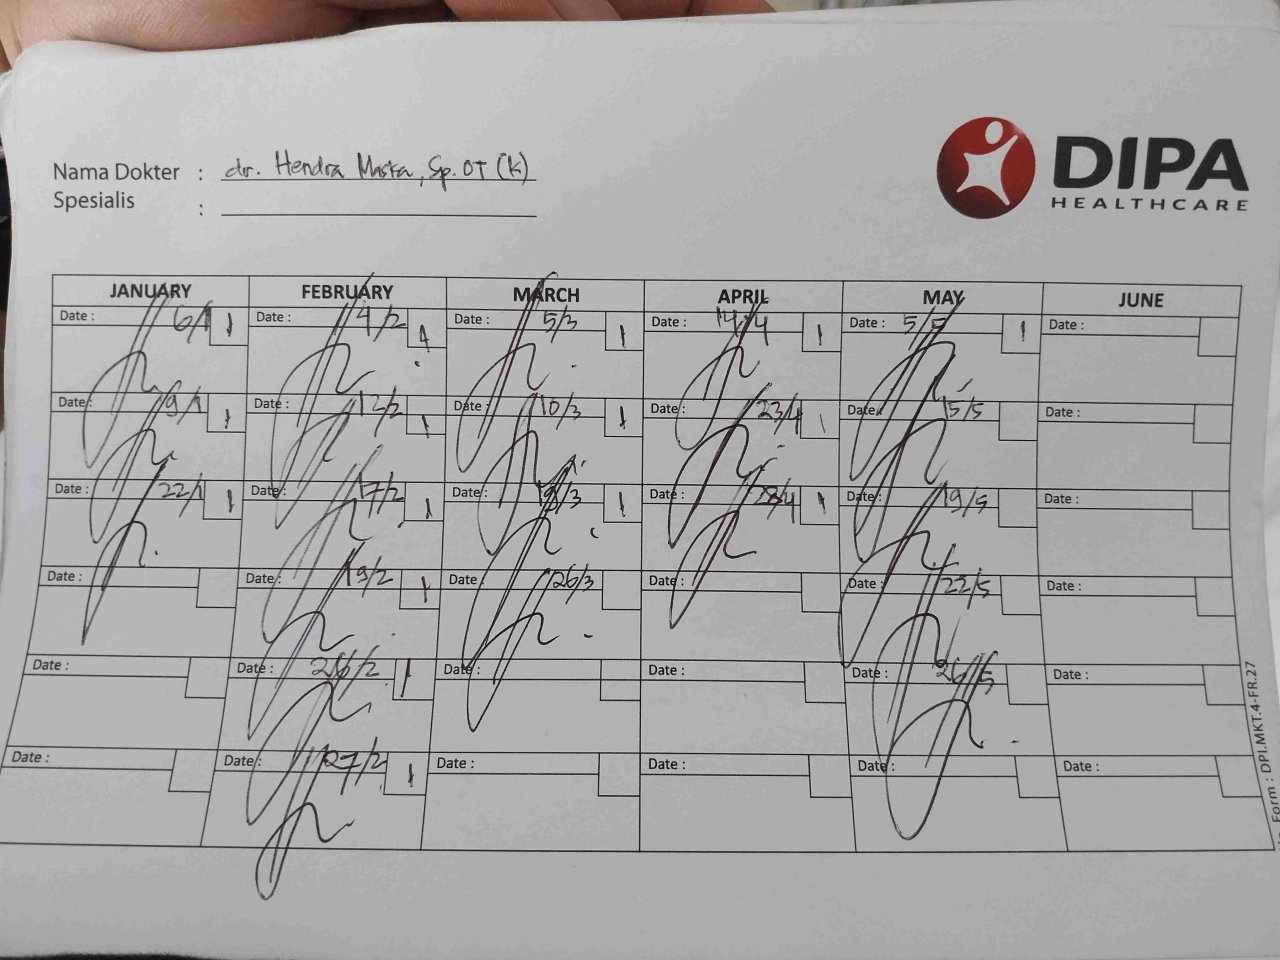 DIPA
HEALTHCARE
Nama Dokter : dr. Hendra Maska, Sp. OT (K)
Spesialis :
JANUARY FEBRUARY MARCH APRIL MAY JUNE
Date : 6/1 1 Date : 4/2 1 Date : 5/3 1 Date : 14/4 1 Date : 5/5 1 Date :
Date : 9/1 1 Date : 12/2 1 Date : 10/3 1 Date : 23/4 1 Date : 15/5 Date :
Date : 22/1 1 Date : 17/2 1 Date : /3 1 Date : 28/4 1 Date : 19/5 Date :
Date : Date : 19/2 1 Date : 26/3 Date : Date : 22/5 Date :
Date : Date : 26/2 1 Date : Date : Date : 26/5 Date :
Date : Date : 27/2 1 Date : Date : Date : Date :
Form : DPI.MKT.4-FR.27